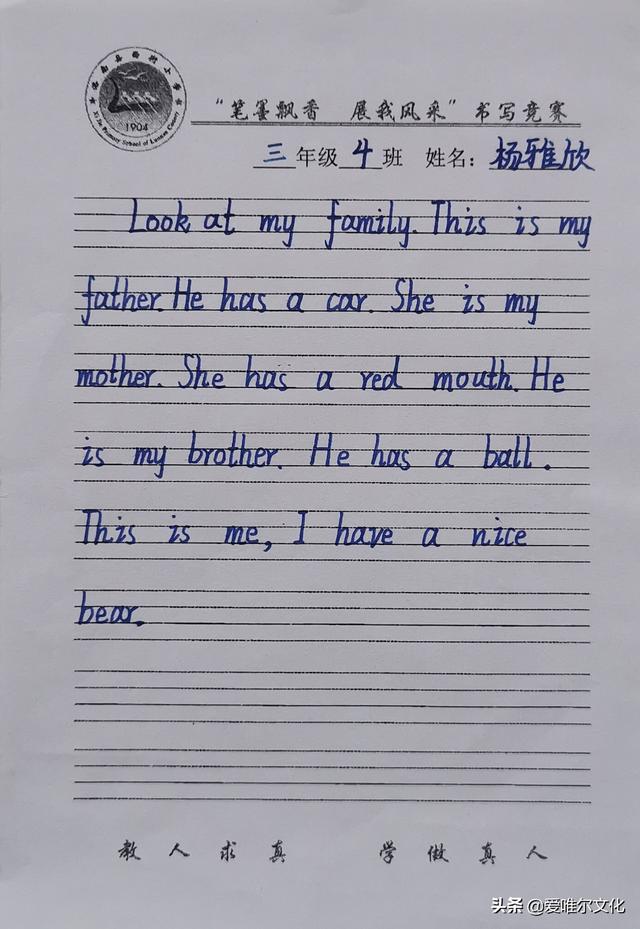 "笔墨飘香 展我风采"书写竞赛
1904
三年级 4班 姓名：杨雅欣
Look at my family. This is my
father. He has a car. She is my
mother. She has a red mouth. He
is my brother. He has a ball.
This is me, I have a nice
bear.
教人求真 学做真人
头条 @爱唯尔文化